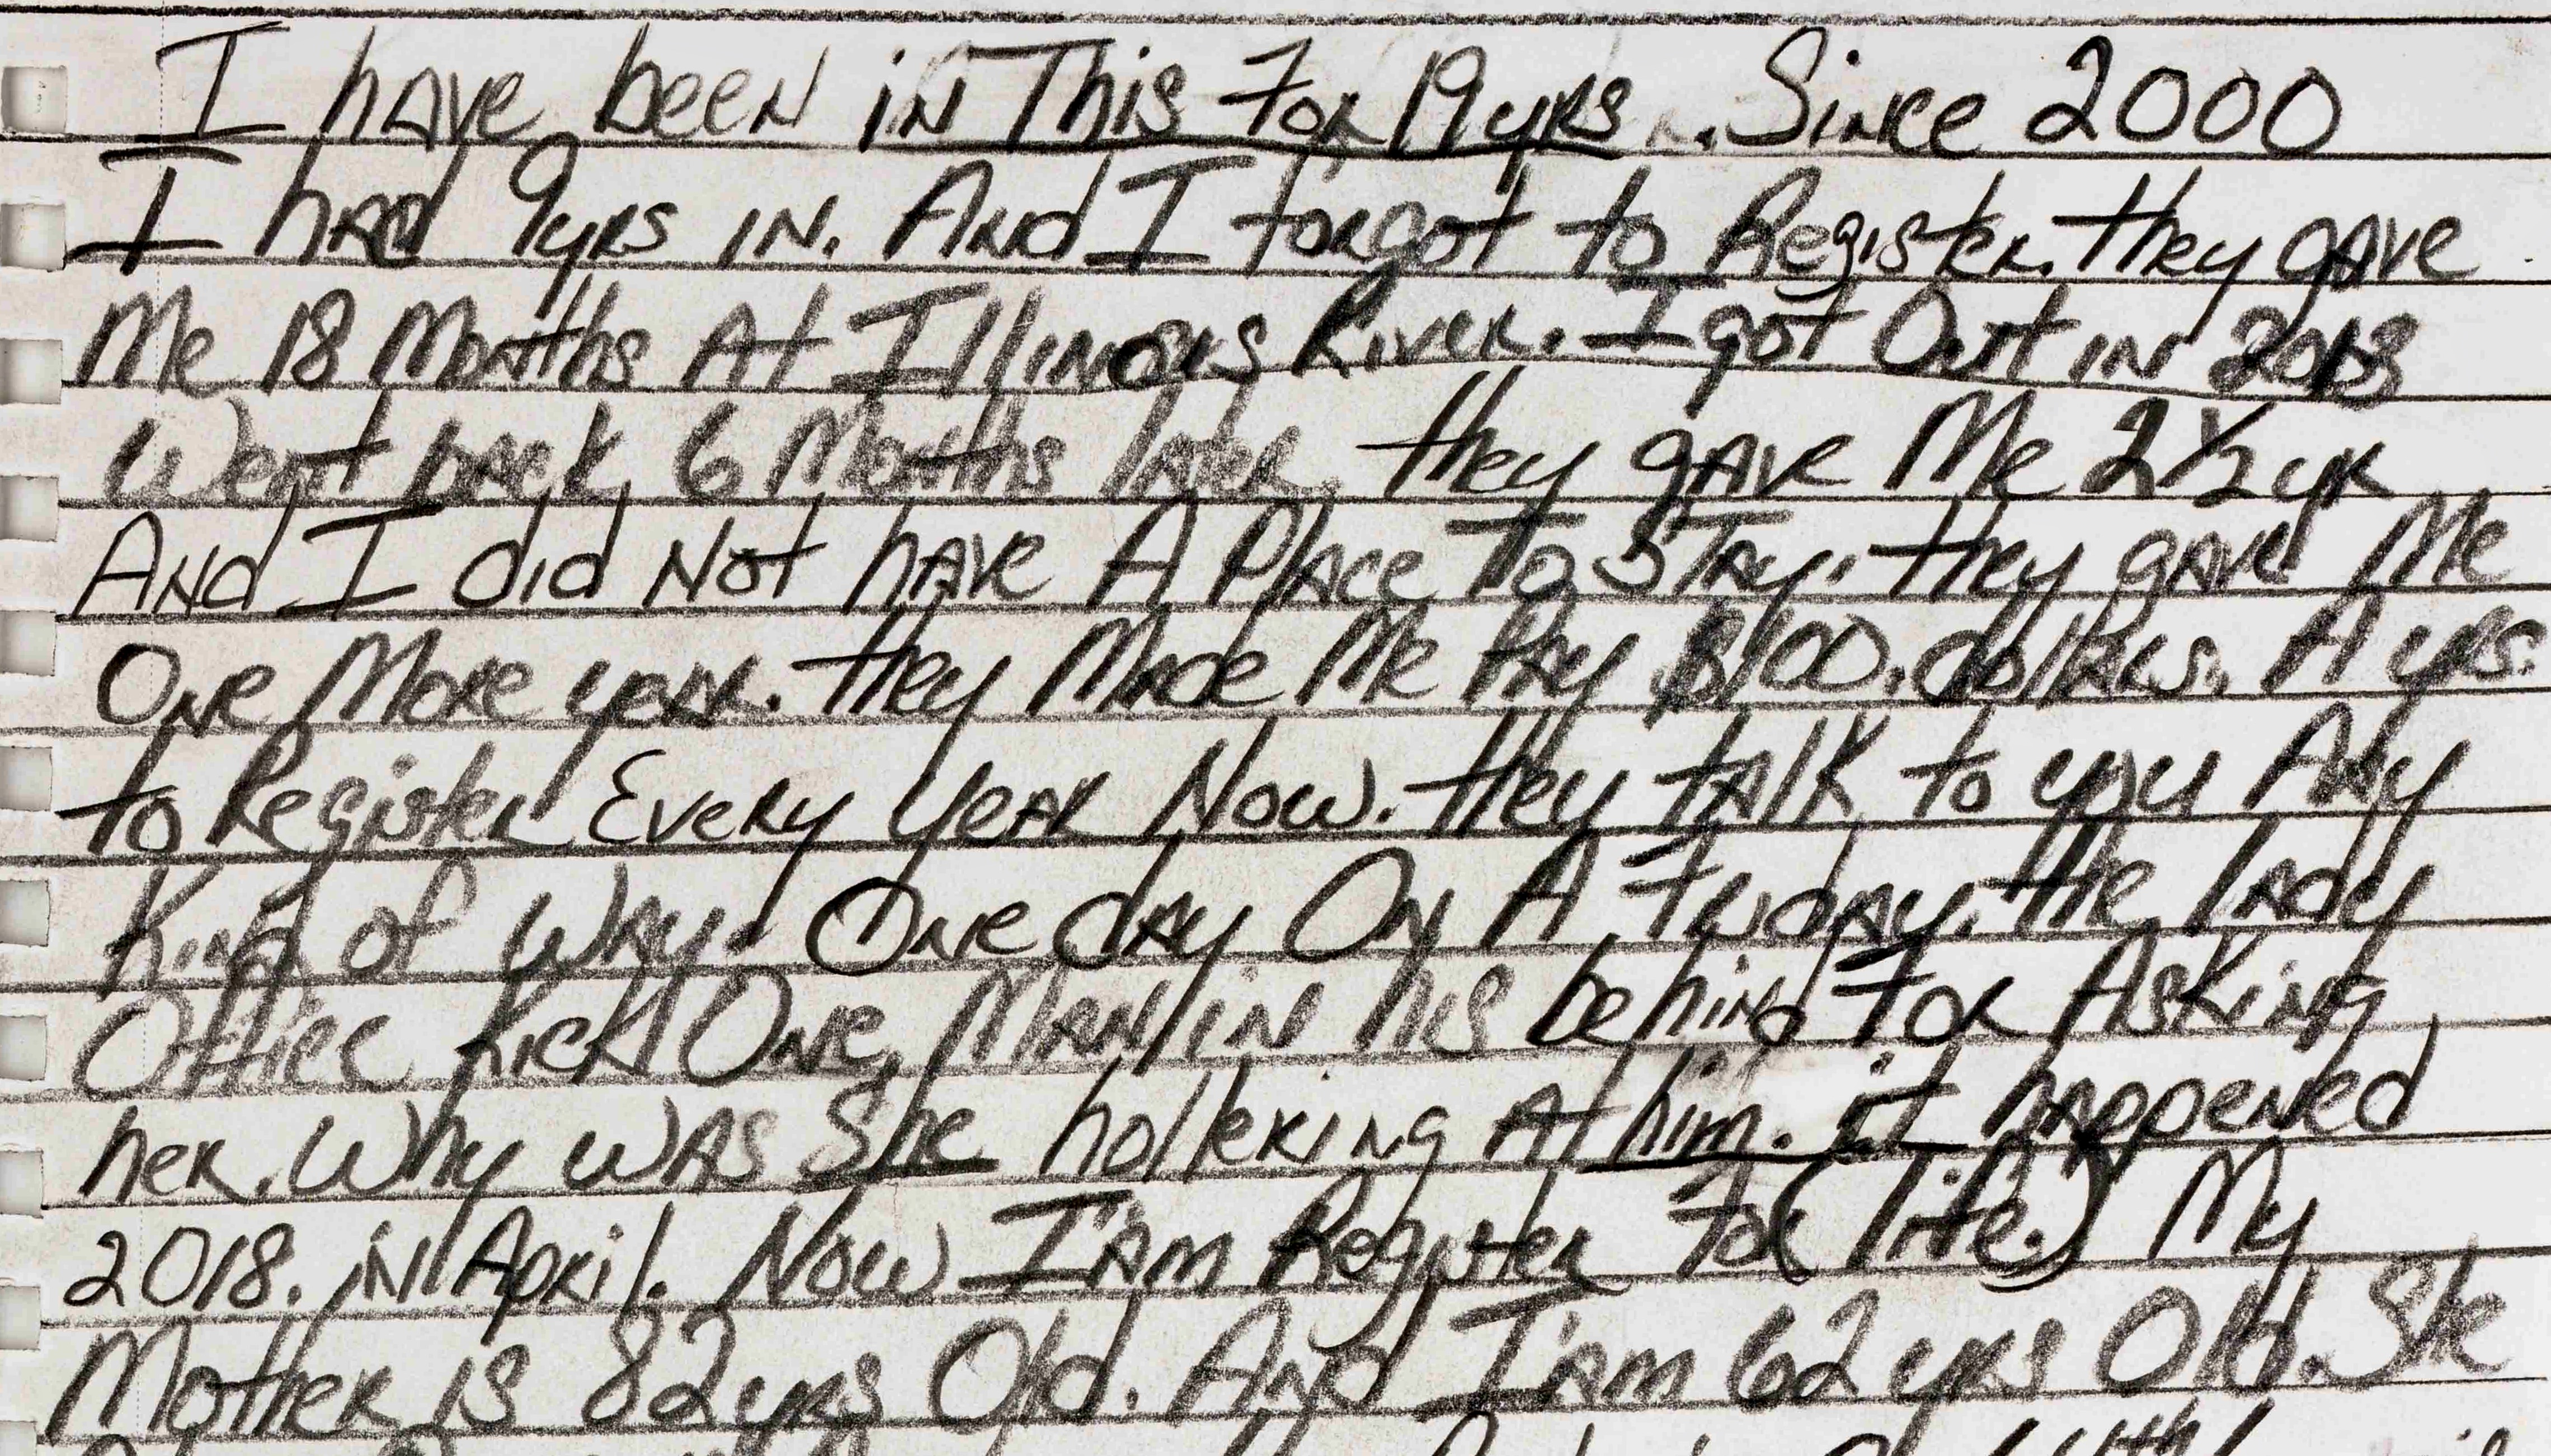 I have been in This For 19 yrs. Since 2000
I had 9 yrs in. And I forgot to Register. they gave
Me 18 Months At Illinois River. I got Out in
Went back 6 Months later. they gave Me 2 1/2 yr
And I did Not have A Place To STay. they gave Me
One More year. they Made Me Pay $100. dollars. A yrs.
to Register Every year Now. they talk to you Any
Kind of Way. One day On A Friday. the lady
Officer Kick One Man in his behind For Asking
her. Why was She hollering At him. it happened
2018. in April. Now I'am Register For (life.) My
Mother is 82 yrs Old. And I'am 62 yrs Old. She